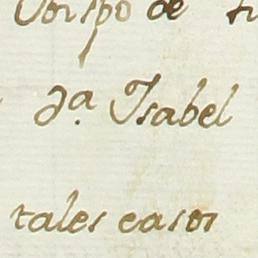 Obispo de
Dª. Isabel
tales casos